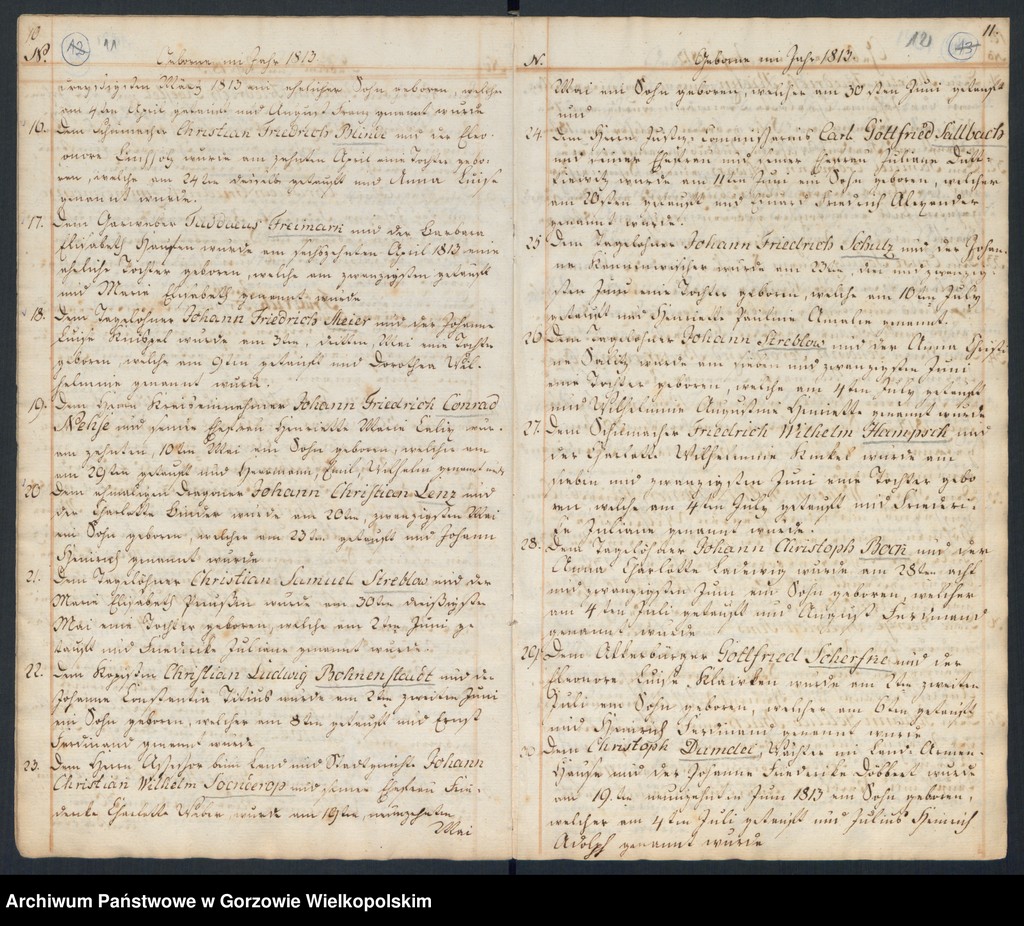 10
No.
12
11
Geborne im Jahr 1813.
dreyßigsten März 1813 ein ehelicher Sohn geboren, welcher
am 4ten April getauft und August Franz genannt wurde
16. Dem Schumacher Christian Friedrich Blinde und der Eleo-
onore wurde am zehnten April eine Tochter gebo-
ren, welche am 24ten getauft und Anna Luise
genannt wurde.
17. Dem Taddaeus Freimark und der Barbara
Elisabeth wurde am sechszehnten April 1813 eine
eheliche Tochter geboren, welche am zwanzigsten getauft
und Marie Elisabeth genannt wurde
18. Dem Tagelöhner Johann Friedrich Meier und der Johanne
Luise wurde am 3ten, dritten, Mai eine Tochter
geboren, welche am 9ten getauft und Dorothea Wil-
helmine genannt wurde.
19. Dem Herrn Kreiseinnehmer Johann Friedrich Conrad
Nehse und seiner Ehefrau Henriette Marie
am zehnten, 10ten Mai ein Sohn geboren, welcher am
am 29ten getauft und Herrmann, Emil, Wilhelm genannt
20 Dem ehmaligen Dragoner Johann Christian Lenz und
der Charlotte Binder wurde am 20ten, zwanzigsten Mai
ein Sohn geboren, welcher am 23ten getauft und Johann
Heinrich genannt wurde
21. Dem Tagelöhner Christian Samuel Streblow und der
Marie Elisabeth wurde am 30ten dreißigsten
Mai eine Tochter geboren, welche am 2ten Juni ge-
tauft und Friedericke Juliane genannt wurde.
22. Dem Christian Ludwig Bohnenstaedt und der
Johanne Constantia Titius wurde am 2ten zweiten Juni
ein Sohn geboren, welcher am 8ten getauft und Ernst
Ferdinand genannt wurde
23. Dem Herrn Assessor beim Land und Stadtgericht Johann
Christian Wilhelm Soenderop und seiner Ehefrau Frie-
dericke Charlotte wurde am 19ten, neunzehnten
Mai
11.
12
13
No.
Geborne im Jahr 1813.
Mai ein Sohn geboren, welcher am 30sten Juni getauft
und
24. Dem Herrn Justiz-Commissarius Carl Gottfried Sallbach
und seiner Ehefrau Juliane
wurde am 11ten Juni ein Sohn geboren, welcher
am 20sten getauft und Eduard Friedrich Alexander
genannt wurde.
25 Dem Tagelöhner Johann Friedrich Schulz und der Johan-
ne wurde am 23ten, drei und zwanzig-
sten Juni eine Tochter geboren, welche am 10ten July
getauft und Henriette Pauline Amalie genannt.
26 Dem Tagelöhner Johann Streblow und der Anna Christi-
ne wurde am sieben und zwanzigsten Juni
eine Tochter geboren, welche am 4ten July getauft
und Wilhelmine Augustine Henriette genannt wurde
27. Dem Schumacher Friedrich Wilhelm Hampsch und
der Charlotte Wilhelmine Kunkel wurde am
sieben und zwanzigsten Juni eine Tochter gebo
ren welche am 4ten July getauft und Friederi-
ke Juliane genannt wurde.
28. Dem Tagelöhner Johann Christoph Bock und der
Anna Charlotte Ladewig wurde am 28ten acht
und zwanzigsten Juni ein Sohn geboren, welcher
am 4ten Juli getauft und August Ferdinand
genannt wurde
29. Dem Ackerbürger Gottfried Schersne und der
Eleonore Luise wurde am 2ten zweiten
Juli ein Sohn geboren, welcher am 6ten getauft
und Heinrich Ferdinand genannt wurde
30 Dem Christoph Damdel, Wächter im Land-Armen-
Hause und der Johanne Friedericke Döbbert wurde
am 19.ten neunzehnten Juni 1813 ein Sohn geboren,
welcher am 4ten Juli getauft und Julius Heinrich
Adolph genannt wurde
Archiwum Państwowe w Gorzowie Wielkopolskim